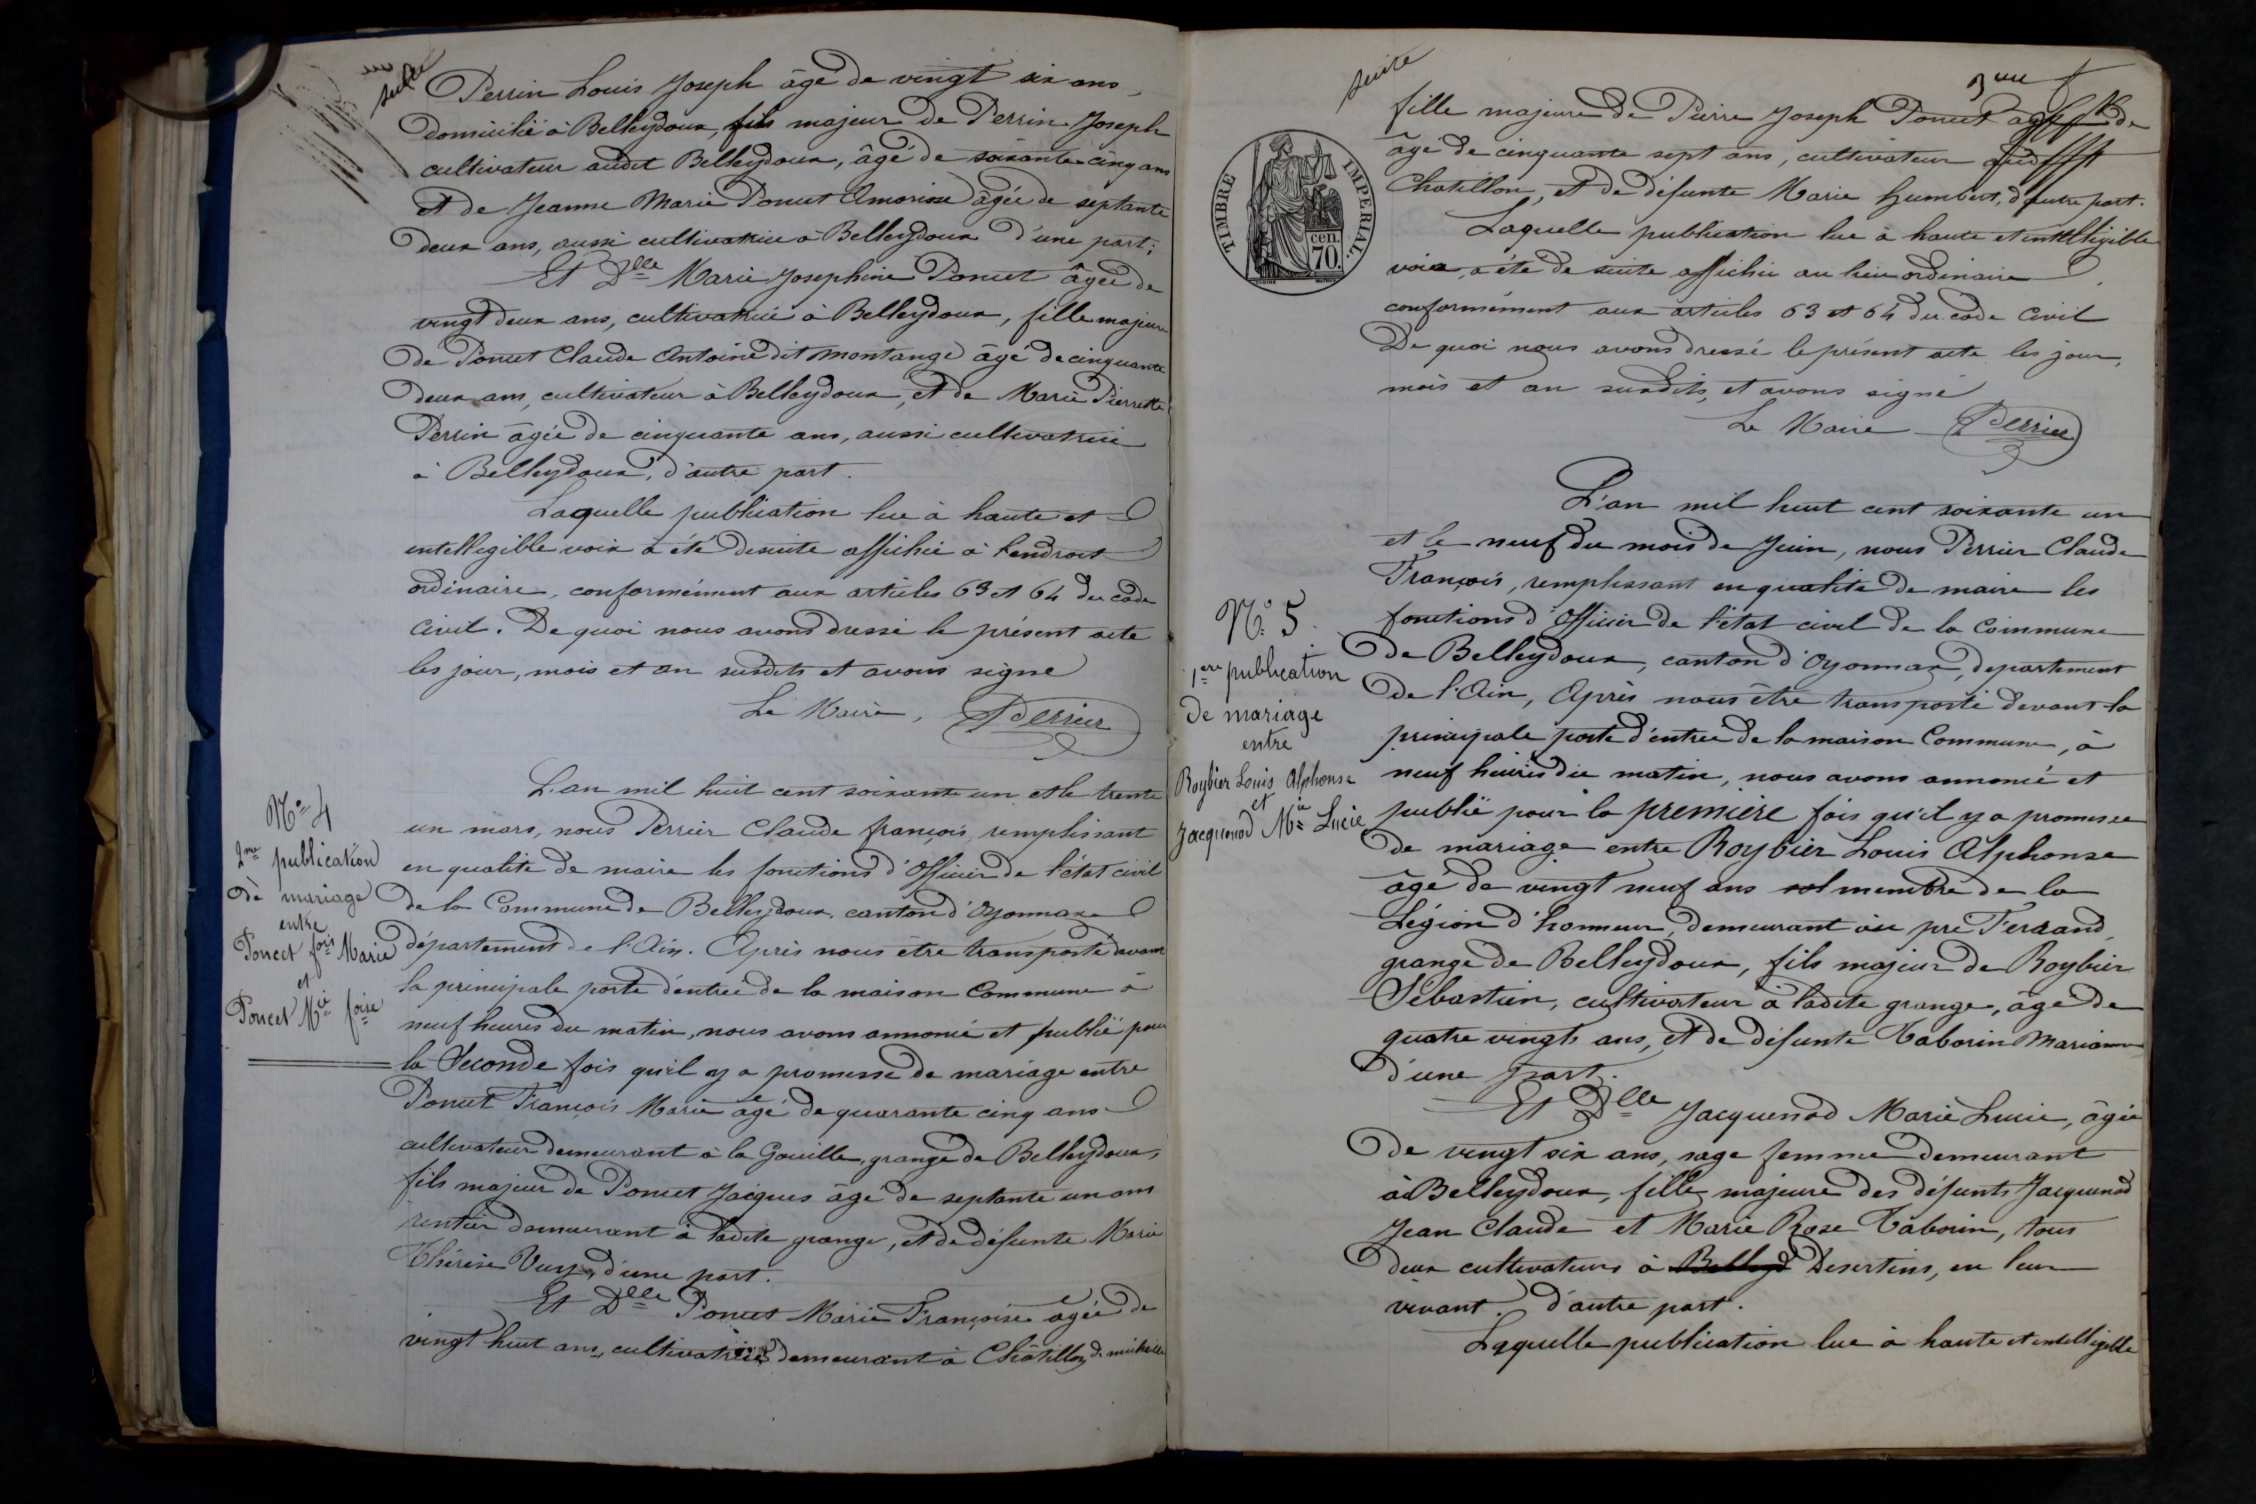 suite
Perrin Louis Joseph âgé de vingt six ans,
domicilié à Belleydoux, fils majeur de Perrin Joseph
cultivateur audit Belleydoux, âgé de soixante cinq ans
et de Jeanne Marie Poncet âgée de septante
deux ans, aussi cultivatrice à Belleydoux d'une part;
Et Dlle Marie Josephine Poncet âgée de
vingt deux ans, cultivatrice à Belleydoux, fille majeure
de Poncet Claude Antoine dit montange âgé de cinquante
deux ans, cultivateur à Belleydoux, et de Marie Pierrette
Perrin âgée de cinquante ans, aussi cultivatrice
à Belleydoux, d'autre part.
Laquelle publication lue à haute et
intellegible voix a été desuite affichée à l'endroit
ordinaire, conformément aux articles 63 et 64 du code
civil. De quoi nous avons dressé le présent acte
les jour, mois et an susdits et avons signé
Le Maire, Perrier
N° 4
2me publication
de mariage
entre
Poncet fois Marie
et
Poncet Mie foise
L'an mil huit cent soixante un et le trente
un mars, nous Perrier Claude françois, remplissant
en qualité de maire les fonctions d'Officier de l'état civil
de la Commune de Belleydoux, canton d'Oyonnax
département de l'Ain. Après nous être transporté devant
la principale porte d'entrée de la maison Commune à
neuf heures du matin, nous avons annoncé et publié pour
la Seconde fois qu'il y a promesse de mariage entre
Poncet François Marie âgé de quarante cinq ans
cultivateur demeurant à la Gouille, grange de Belleydoux,
fils majeur de Poncet Jacques âgé de septante un ans
rentier demeurant à ladite grange, et de défunte Marie
Thérèse Vuy, d'une part.
Et Dlle Poncet Marie Françoise âgée de
vingt huit ans, cultivatrice demeurant à Châtillon de michaille
suite
3me
fille majeure de Pierre Joseph Poncet
âgé de cinquante sept ans, cultivateur
Chatillon, et de défunte Marie humbert, d'autre part.
Laquelle publication lue à haute et intelligible
voix, a été de suite affichée au lieu ordinaire
conformément aux articles 63 et 64 du code Civil
De quoi nous avons dressé le présent acte les jour,
mois et an susdits, et avons signé
Le Maire Perrier
TIMBRE IMPERIAL.
cen.
70.
N° 5.
1ere publication
de mariage
entre
Roybier Louis Alphonse
et
Jacquenod Mie Lucie
L'an mil huit cent soixante un
et le neuf du mois de Juin, nous Perrier Claude
François, remplissant en qualité de maire les
fonctions d'Officier de l'état civil de la Commune
de Belleydoux, canton d'Oyonnax, departement
de l'Ain, Après nous être transporté devant la
principale porte d'entrée de la maison Commune, à
neuf heures du matin, nous avons annoncé et
publié pour la première fois qu'il y a promesse
de mariage entre Roybier Louis Alphonse
âgé de vingt neuf ans membre de la
Légion d'honneur, demeurant au pré Ferrand
grange de Belleydoux, fils majeur de Roybier
Sébastien, cultivateur à ladite grange, âgé de
quatre vingts ans, et de défunte Taborin Marianne
d'une part.
Et Dlle Jacquenod Marie Lucie, âgée
de vingt six ans, sage femme demeurant
à Belleydoux, fille majeure des défunts Jacquenod
Jean Claude et Marie Rose Taborin, tous
deux cultivateurs à Belleyd Desertins, en leur
vivant. d'autre part.
Laquelle publication lue à haute et intelligible